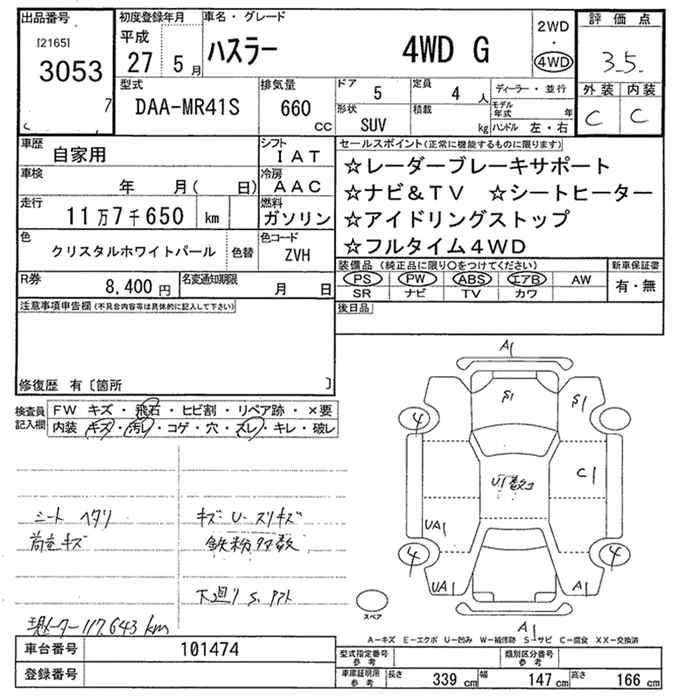 出品番号
[2165]
3053
7
初度登録年月
平成
27 5 月
車名・グレード
ハスラー 4WD G
2WD
・
4WD
評価点
3.5
外装 内装
C C
型式
DAA-MR41S
排気量
660
CC
ドア 5
定員 4 人
形状 SUV
積載 kg
ディーラー・並行
モデル年式 年
ハンドル 左・右
車歴
自家用
シフト
IAT
車検
年 月( 日)
冷房
AAC
走行
11万7千650 km
燃料
ガソリン
色
クリスタルホワイトパール
色替
色コード
ZVH
R券
8,400円
名変通知期限
月 日
セールスポイント(正常に機能するものに限ります)
☆レーダーブレーキサポート
☆ナビ&TV ☆シートヒーター
☆アイドリングストップ
☆フルタイム4WD
装備品(純正品に限り○をつけてください)
PS PW ABS エアB AW
SR ナビ TV カワ
新車保証書
有・無
後日品
注意事項申告欄(不具合内容等は具体的に記入して下さい)
修復歴 有〔箇所 〕
検査員記入欄
FW キズ・飛石・ヒビ割・リペア跡・×要
内装 キズ・汚レ・コゲ・穴・スレ・キレ・破レ
シート ヘタリ
荷室キズ
キズ U スリキズ
鉄粉多数
下廻り S
現メーター117,643km
A1
S1
S1
4
C1
U1数コ
UA1
4
4
UA1
A1
A1
スペア
A-キズ E-エクボ U-凹み W-補修跡 S-サビ C-腐食 XX-交換済
車台番号 101474
登録番号
型式指定番号 参考
類別区分番号 参考
車庫証明用 参考
長さ 339 cm
幅 147 cm
高さ 166 cm